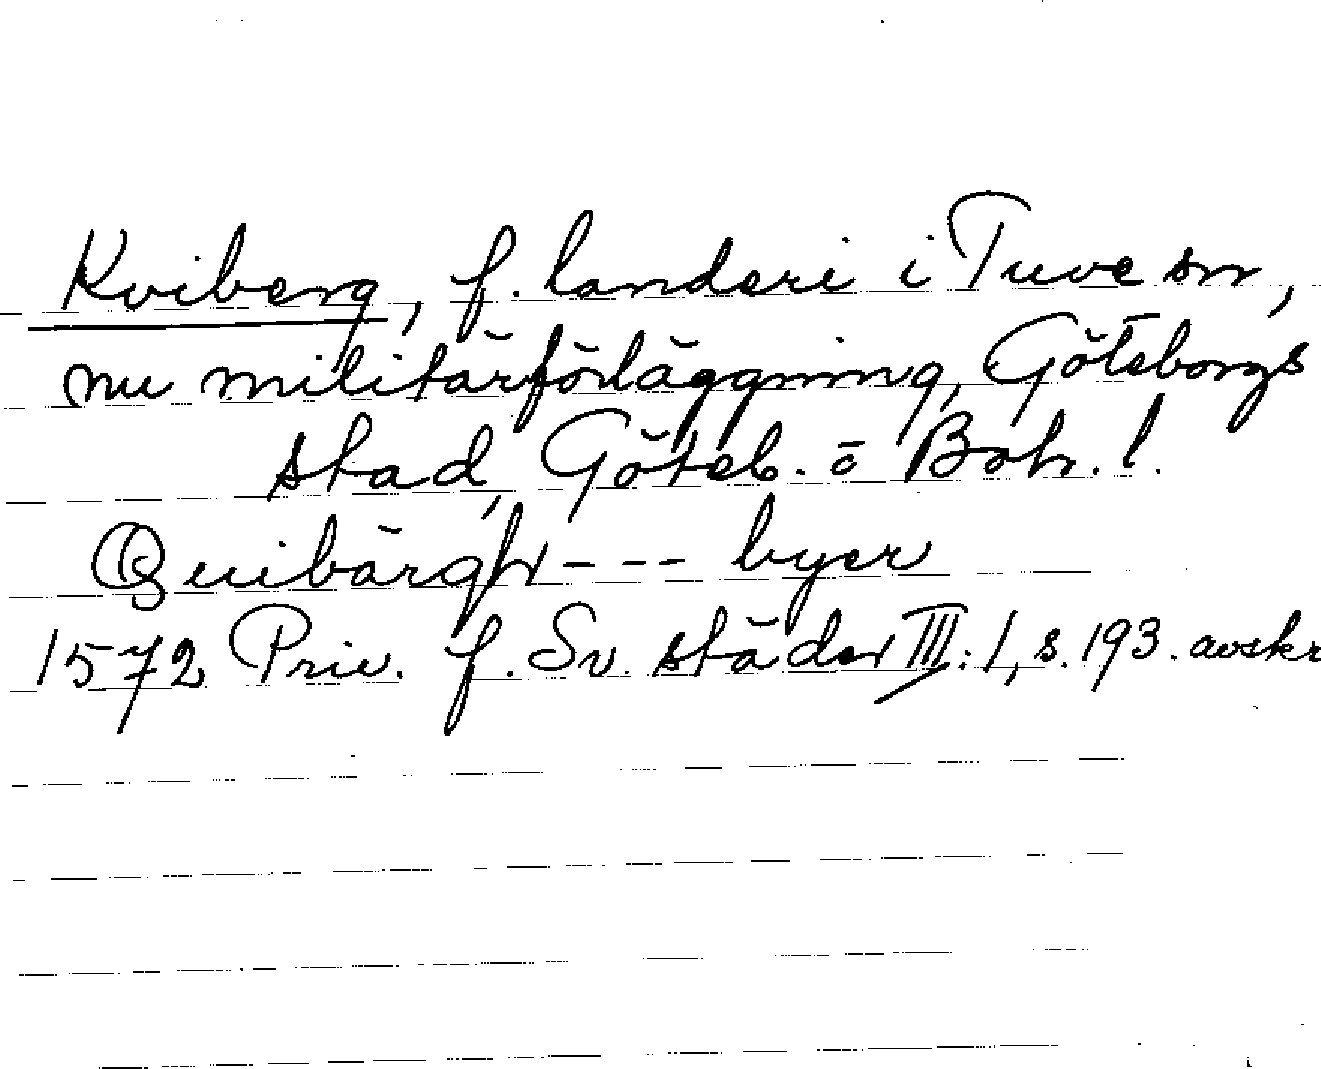 Kviberg, f. landeri i Tuve sn,
nu militärförläggning, Göteborgs
stad, Göteb. o Boh. l.
Quibärgh --- byer
1572 Priv. f. Sv. städer III: 1, s. 193. avskr